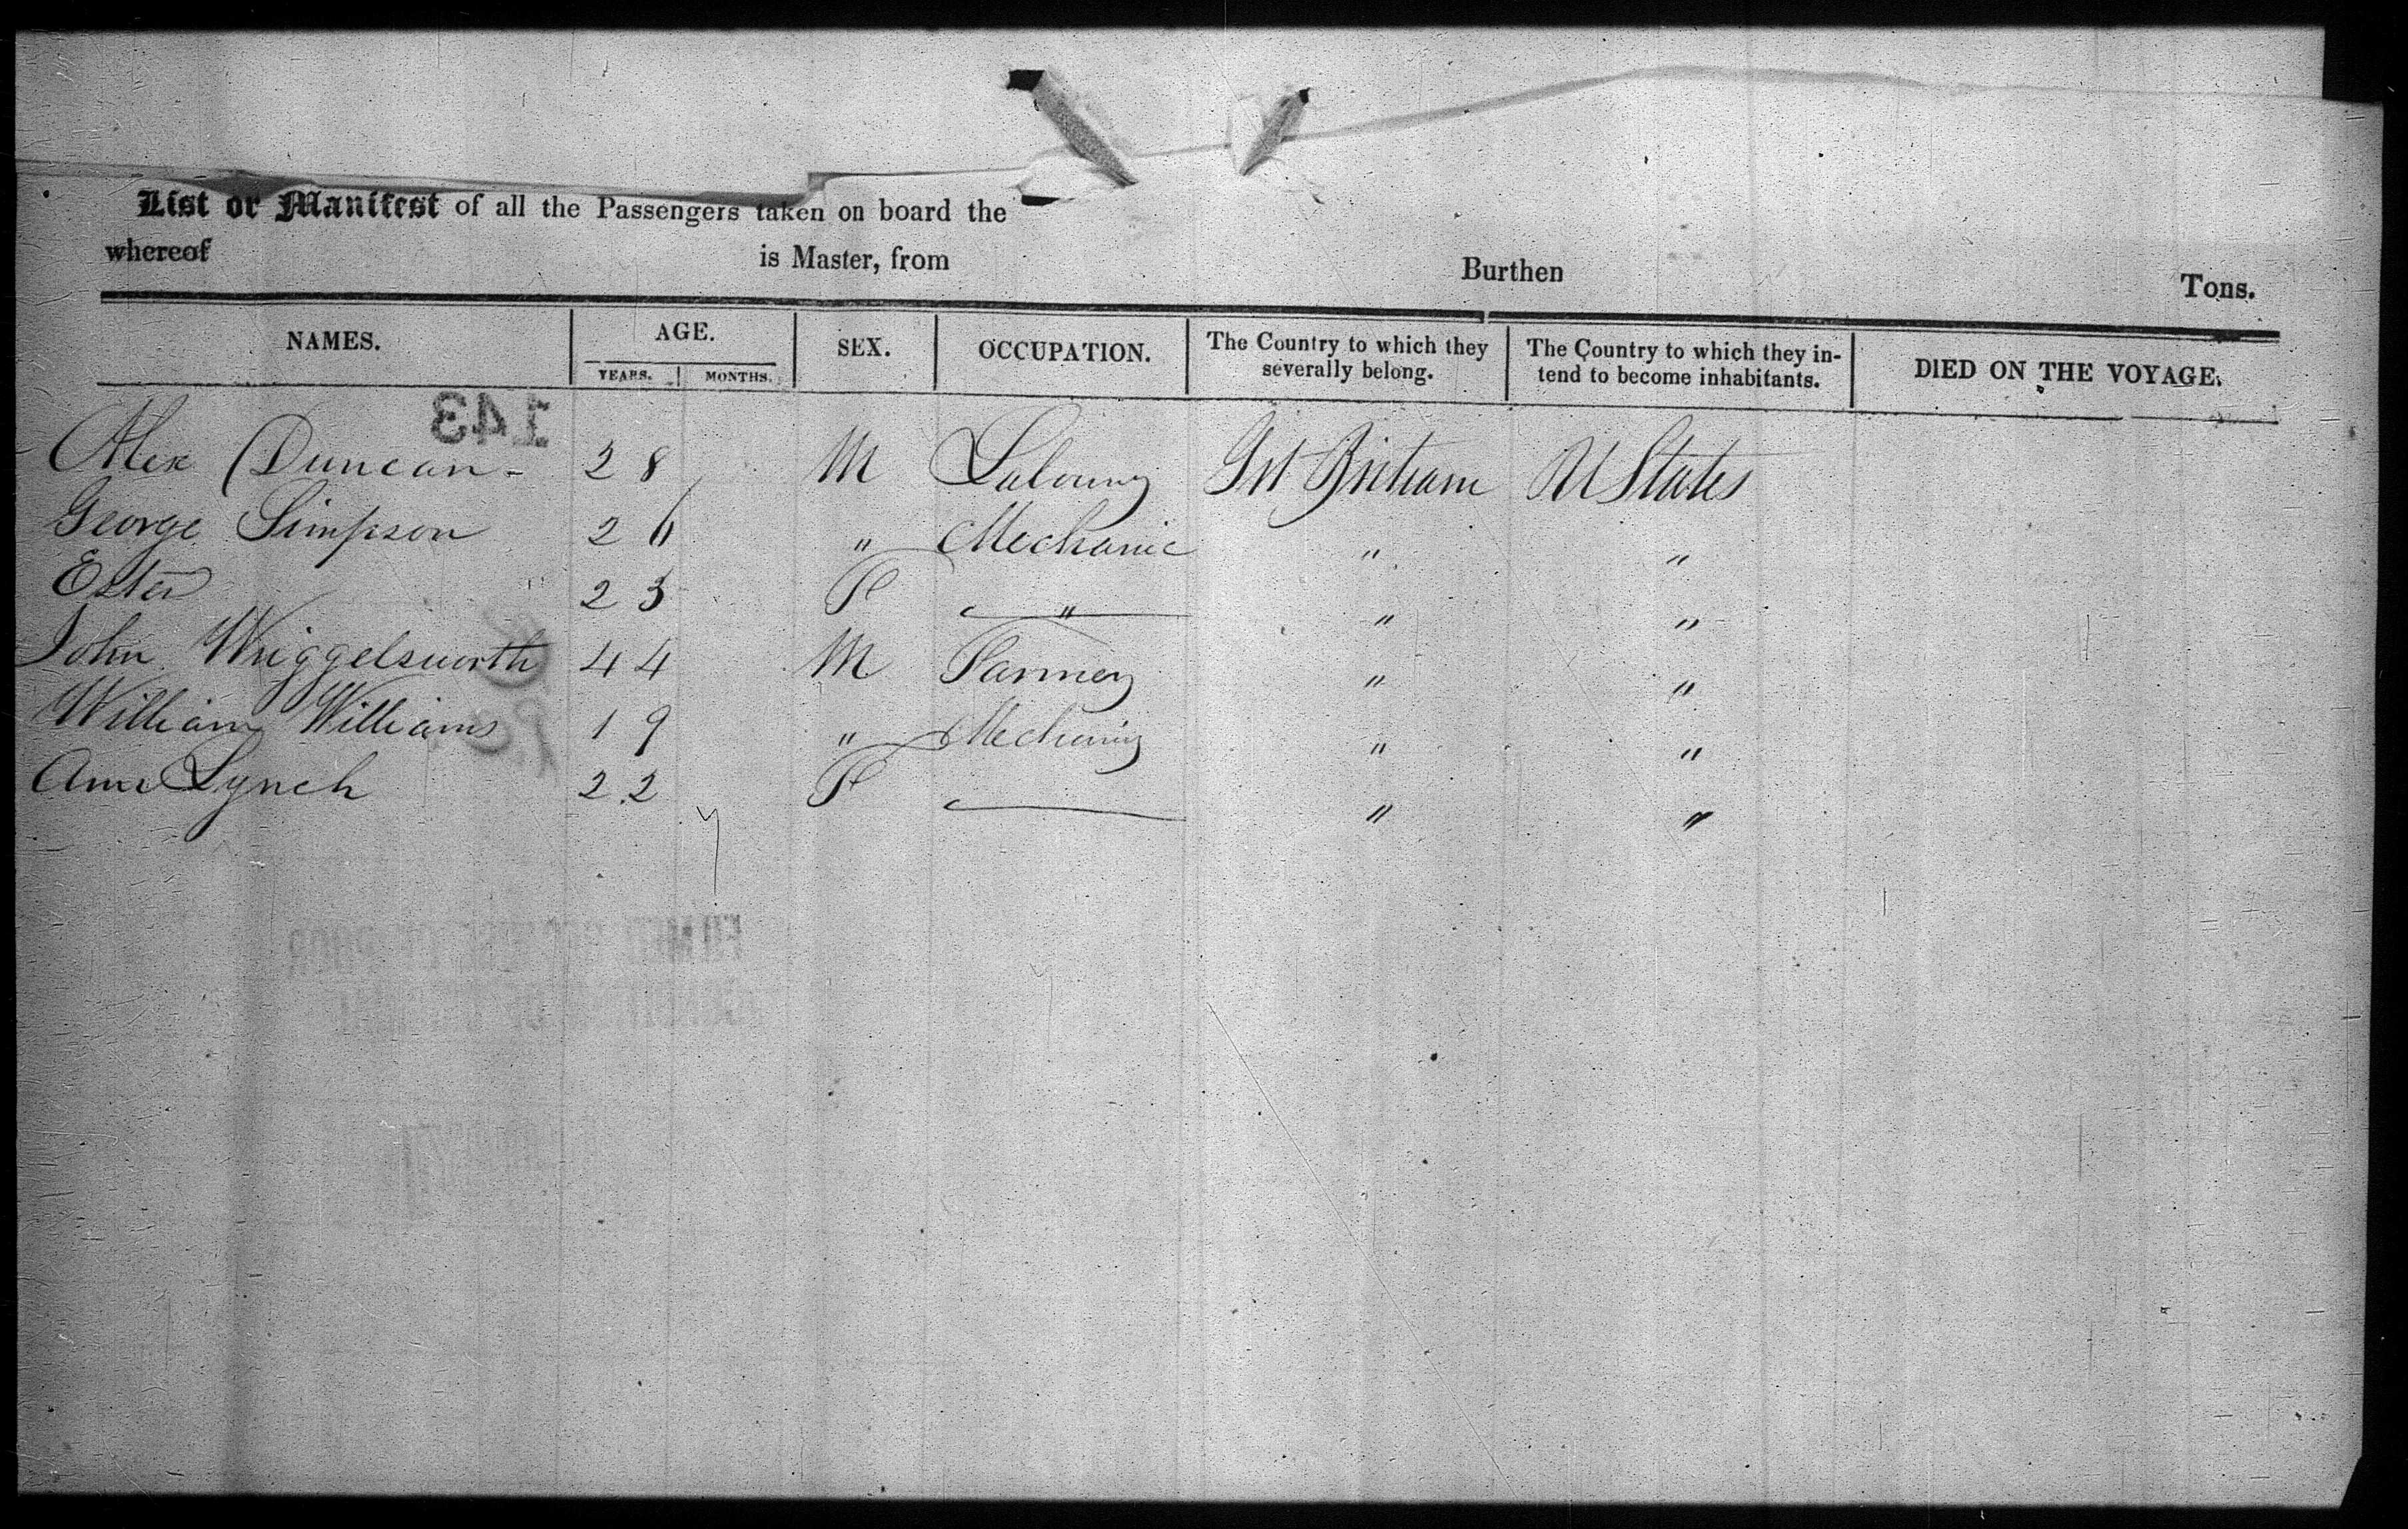 List or Manifest of all the Passengers taken on board the
whereof is Master, from Burthen Tons.
NAMES. AGE. SEX. OCCUPATION. The Country to which they severally belong. The Country to which they in- tend to become inhabitants. DIED ON THE VOYAGE.
YEARS. MONTHS.
143
Alex Duncan - 28 M Labourer Grt Britain U States
George Simpson 26 " Mechanic " "
Ester " 23 F " " "
John Wriggelsworth 44 M Farmer " "
William Williams 19 " Mechanic " "
Ann Lynch 22 F " "